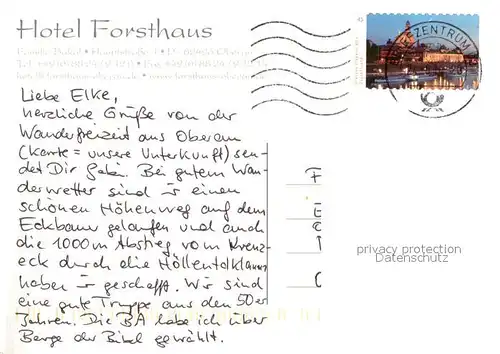 Hotel Forsthaus
BRIEFZENTRUM
Liebe Elke,
herzliche Grüße von der
Wanderfreizeit aus Oberau
(Karte = unsere Unterkunft) sen-
det Dir Gabi. Bei gutem Wan-
derwetter sind wir einen
schönen Höhenweg auf dem
Eckbauer gelaufen und auch
die 1000 m Abstieg vom Kreuz-
eck durch die Höllentalklamm
haben wir geschafft. Wir sind
eine gute Truppe aus den 50er
Jahren. Die BA habe ich über
Berge der Bibel gewählt.
privacy protection
Datenschutz